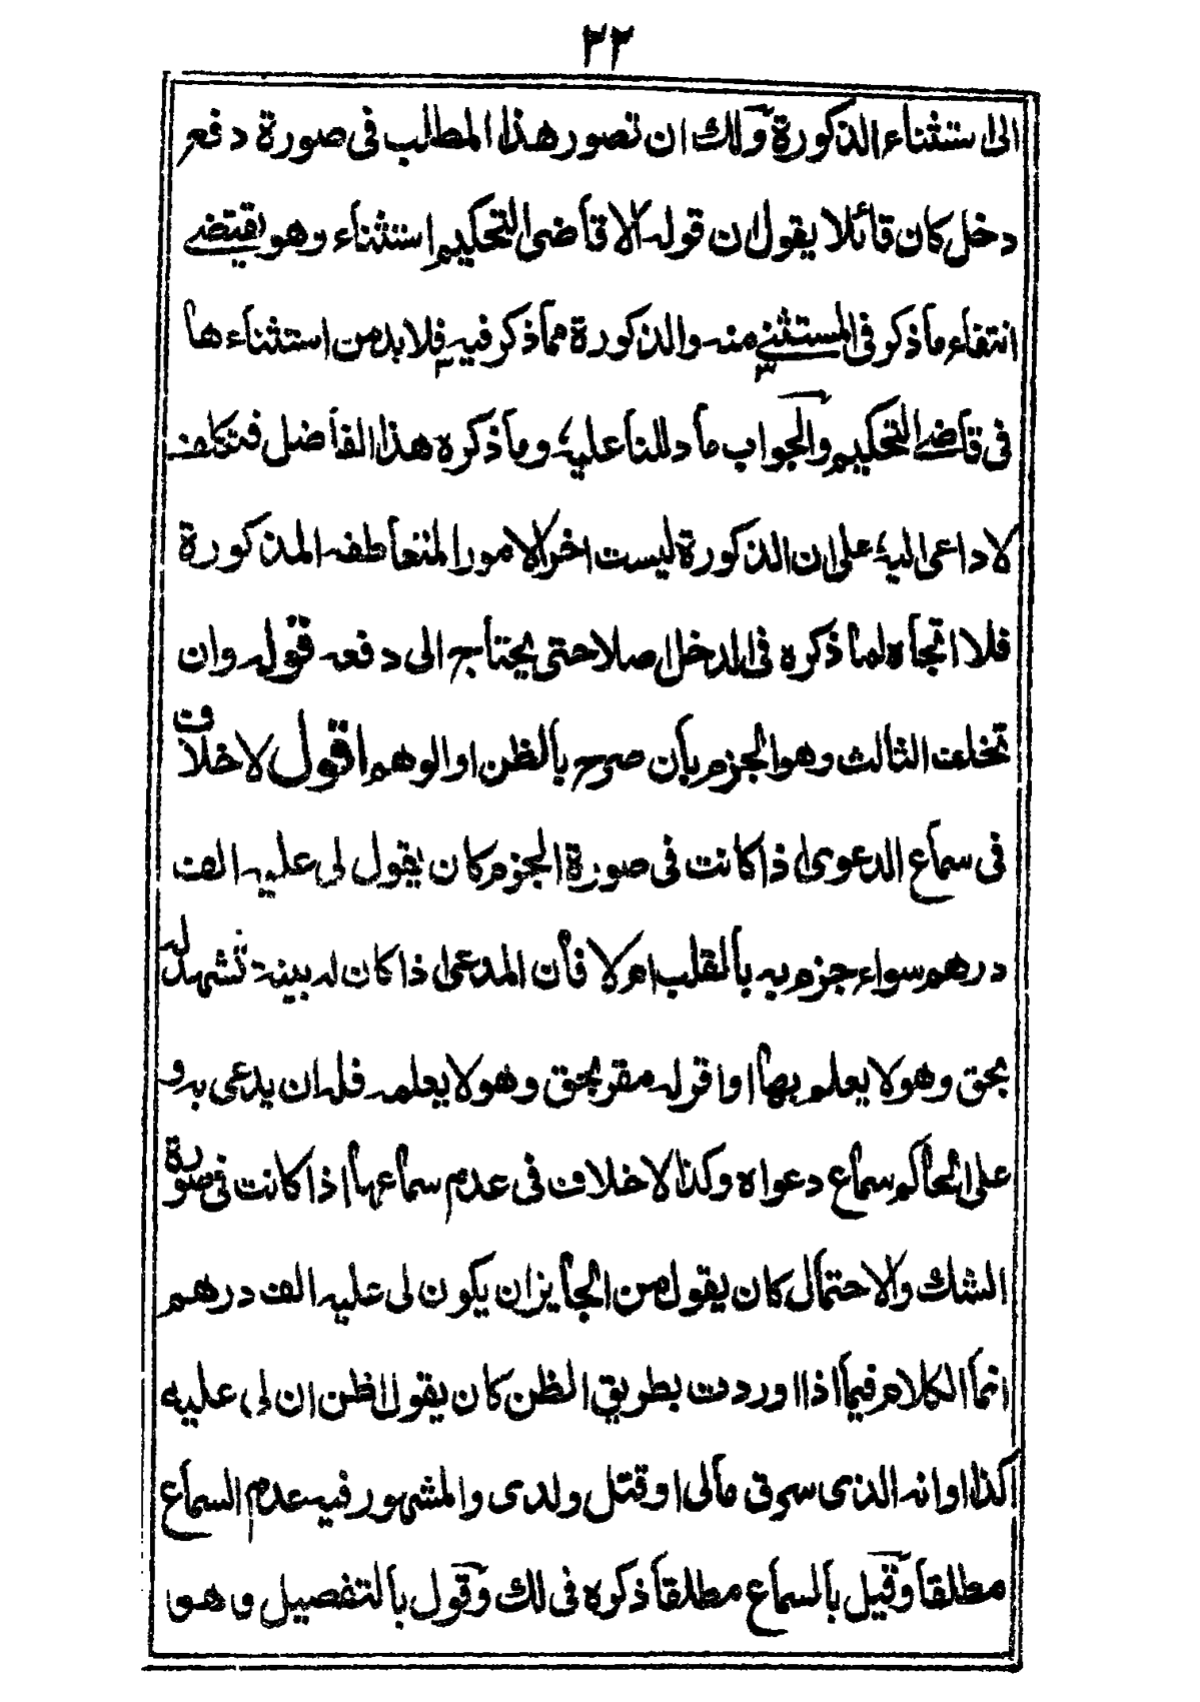 ٢٢
الى استثناء الذكورة ولك ان تصور هذا المطلب فى صورة دفع
دخل كان قائلا يقول ان قوله الا قاضى التحكيم استثناء وهو يقتضے
انتفاء ما ذكر فى المستثنے منه والذكورة مما ذكر فيه فلا بد من استثناء ها
فى قاضے التحكيم والجواب ما دللنا عليه وما ذكره هذا الفاضل فتكلف
لا داعى اليه على ان الذكورة ليست اخر الامور المتعاطفه المذكورة
فلا اتجاه لما ذكره فى الدخل اصلا حتى يحتاج الى دفعه قوله وان
تخلف الثالث وهو الجزم بان صرح بالظن او الوهم اقول لا خلاف
فى سماع الدعوى اذا كانت فى صورة الجزم كان يقول لى عليه الف
درهم سواء جزم به بالقلب ام لا فان المدعى اذا كان له بينة تشهد له
بحق وهو لا يعلم بها او اقر له مقر بحق وهو لا يعلمه فله ان يدعى به و
على الحاكم سماع دعواه وكذا لا خلاف فى عدم سماعها اذا كانت فى صورة
الشك والاحتمال كان يقول من الجايز ان يكون لى عليه الف درهم
انما الكلام فيما اذا اوردت بطريق الظن كان يقول اظن ان لى عليه
كذا او انه الذى سرق مالى او قتل ولدى والمشهور فيه عدم السماع
مطلقا وقيل بالسماع مطلقا ذكره فى لك وقول بالتفصيل وهو